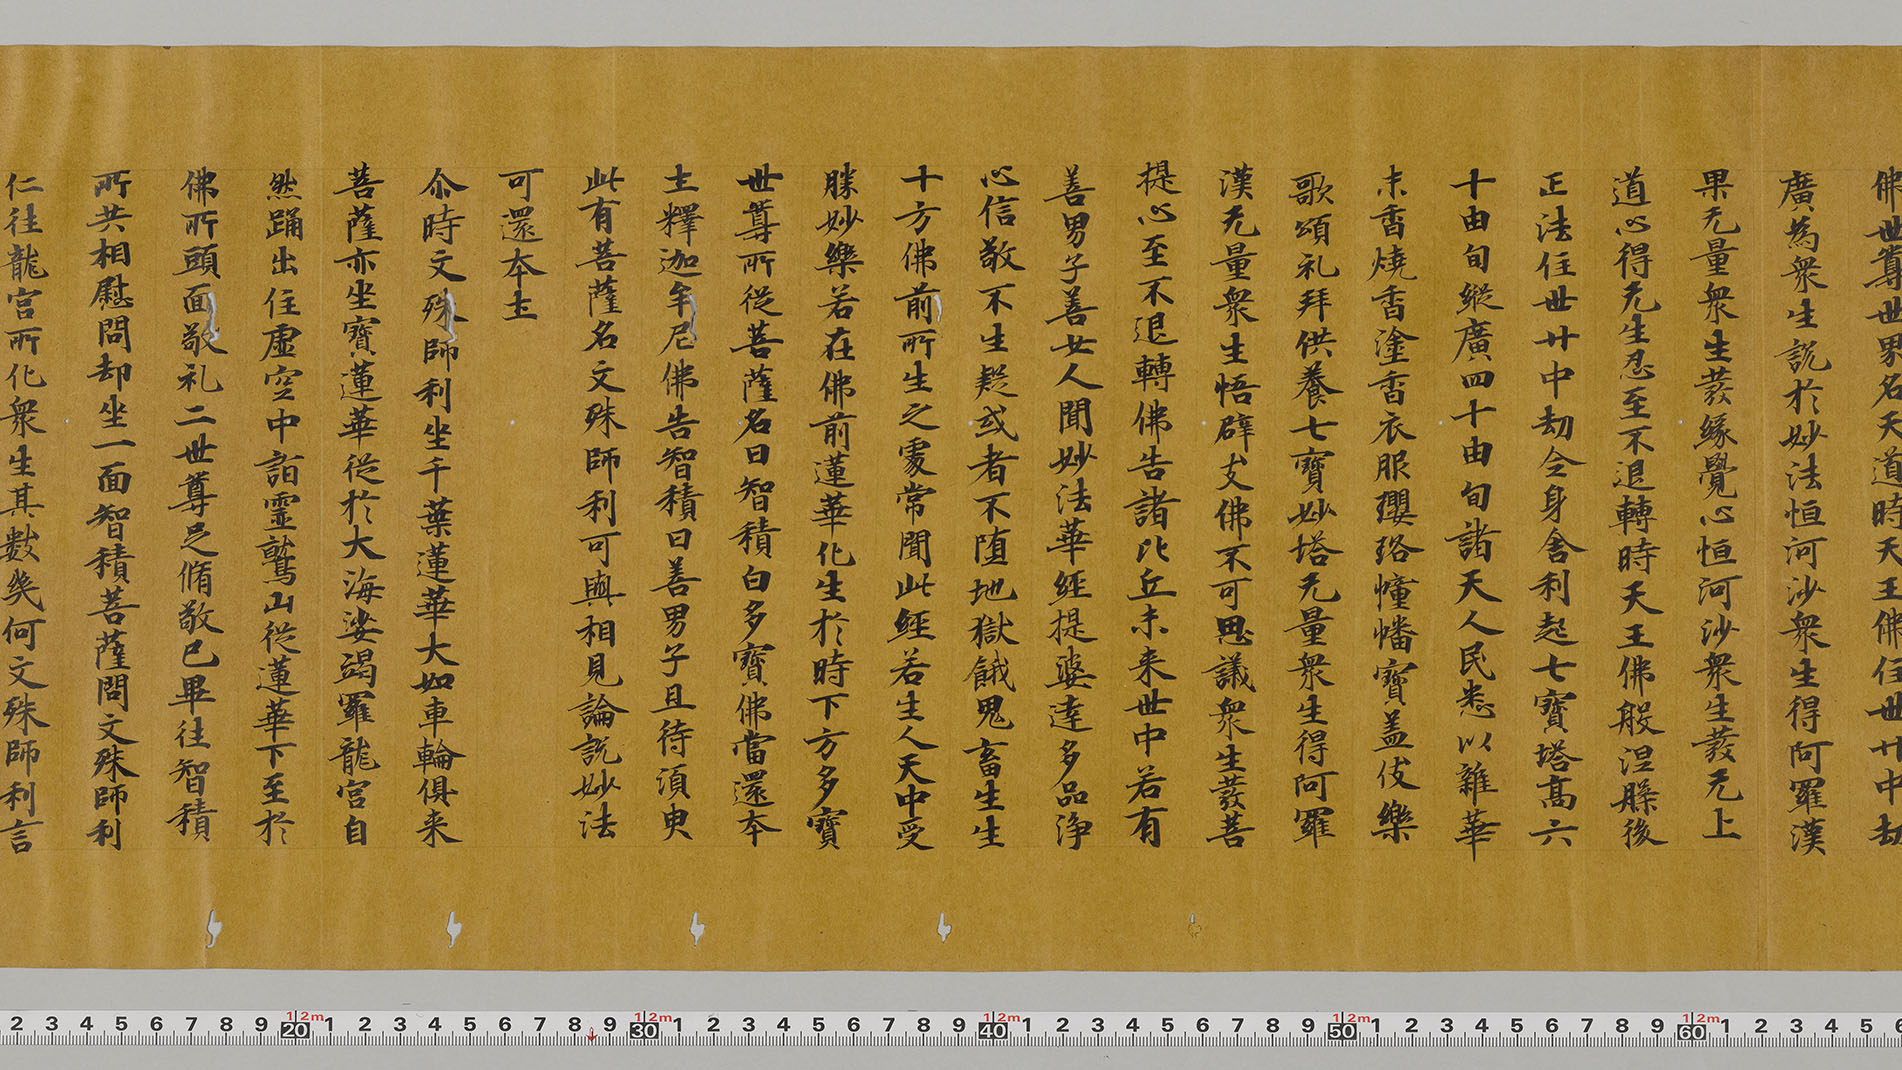 佛世尊世界名天道時天王佛住世廿中劫
廣為衆生説於妙法恒河沙衆生得阿羅漢
果无量衆生發緣覺心恒河沙衆生發无上
道心得无生忍至不退轉時天王佛般涅槃後
正法住世廿中劫全身舍利起七寶塔高六
十由旬縱廣四十由旬諸天人民悉以雜華
末香燒香塗香衣服瓔珞幢幡寶盖伎樂
歌頌礼拜供養七寶妙塔无量衆生得阿羅
漢无量衆生悟辟支佛不可思議衆生發菩
提心至不退轉佛告諸比丘未来世中若有
善男子善女人聞妙法華經提婆達多品浄
心信敬不生疑或者不墮地獄餓鬼畜生生
十方佛前所生之處常聞此經若生人天中受
勝妙樂若在佛前蓮華化生於時下方多寶
世尊所從菩薩名曰智積白多寶佛當還本
土釋迦牟尼佛告智積曰善男子且待須臾
此有菩薩名文殊師利可與相見論説妙法
可還本土
尒時文殊師利坐千葉蓮華大如車輪俱来
菩薩亦坐寶蓮華從於大海娑竭羅龍宮自
然踊出住虚空中詣靈鷲山從蓮華下至於
佛所頭面敬礼二世尊足脩敬已畢往智積
所共相慰問却坐一面智積菩薩問文殊師利
仁往龍宮所化衆生其數幾何文殊師利言
1 2m
1 2m
1 2m
1 2m
1 2m
2 3 4 5 6 7 8 9 20 1 2 3 4 5 6 7 8 9 30 1 2 3 4 5 6 7 8 9 40 1 2 3 4 5 6 7 8 9 50 1 2 3 4 5 6 7 8 9 60 1 2 3 4 5 6